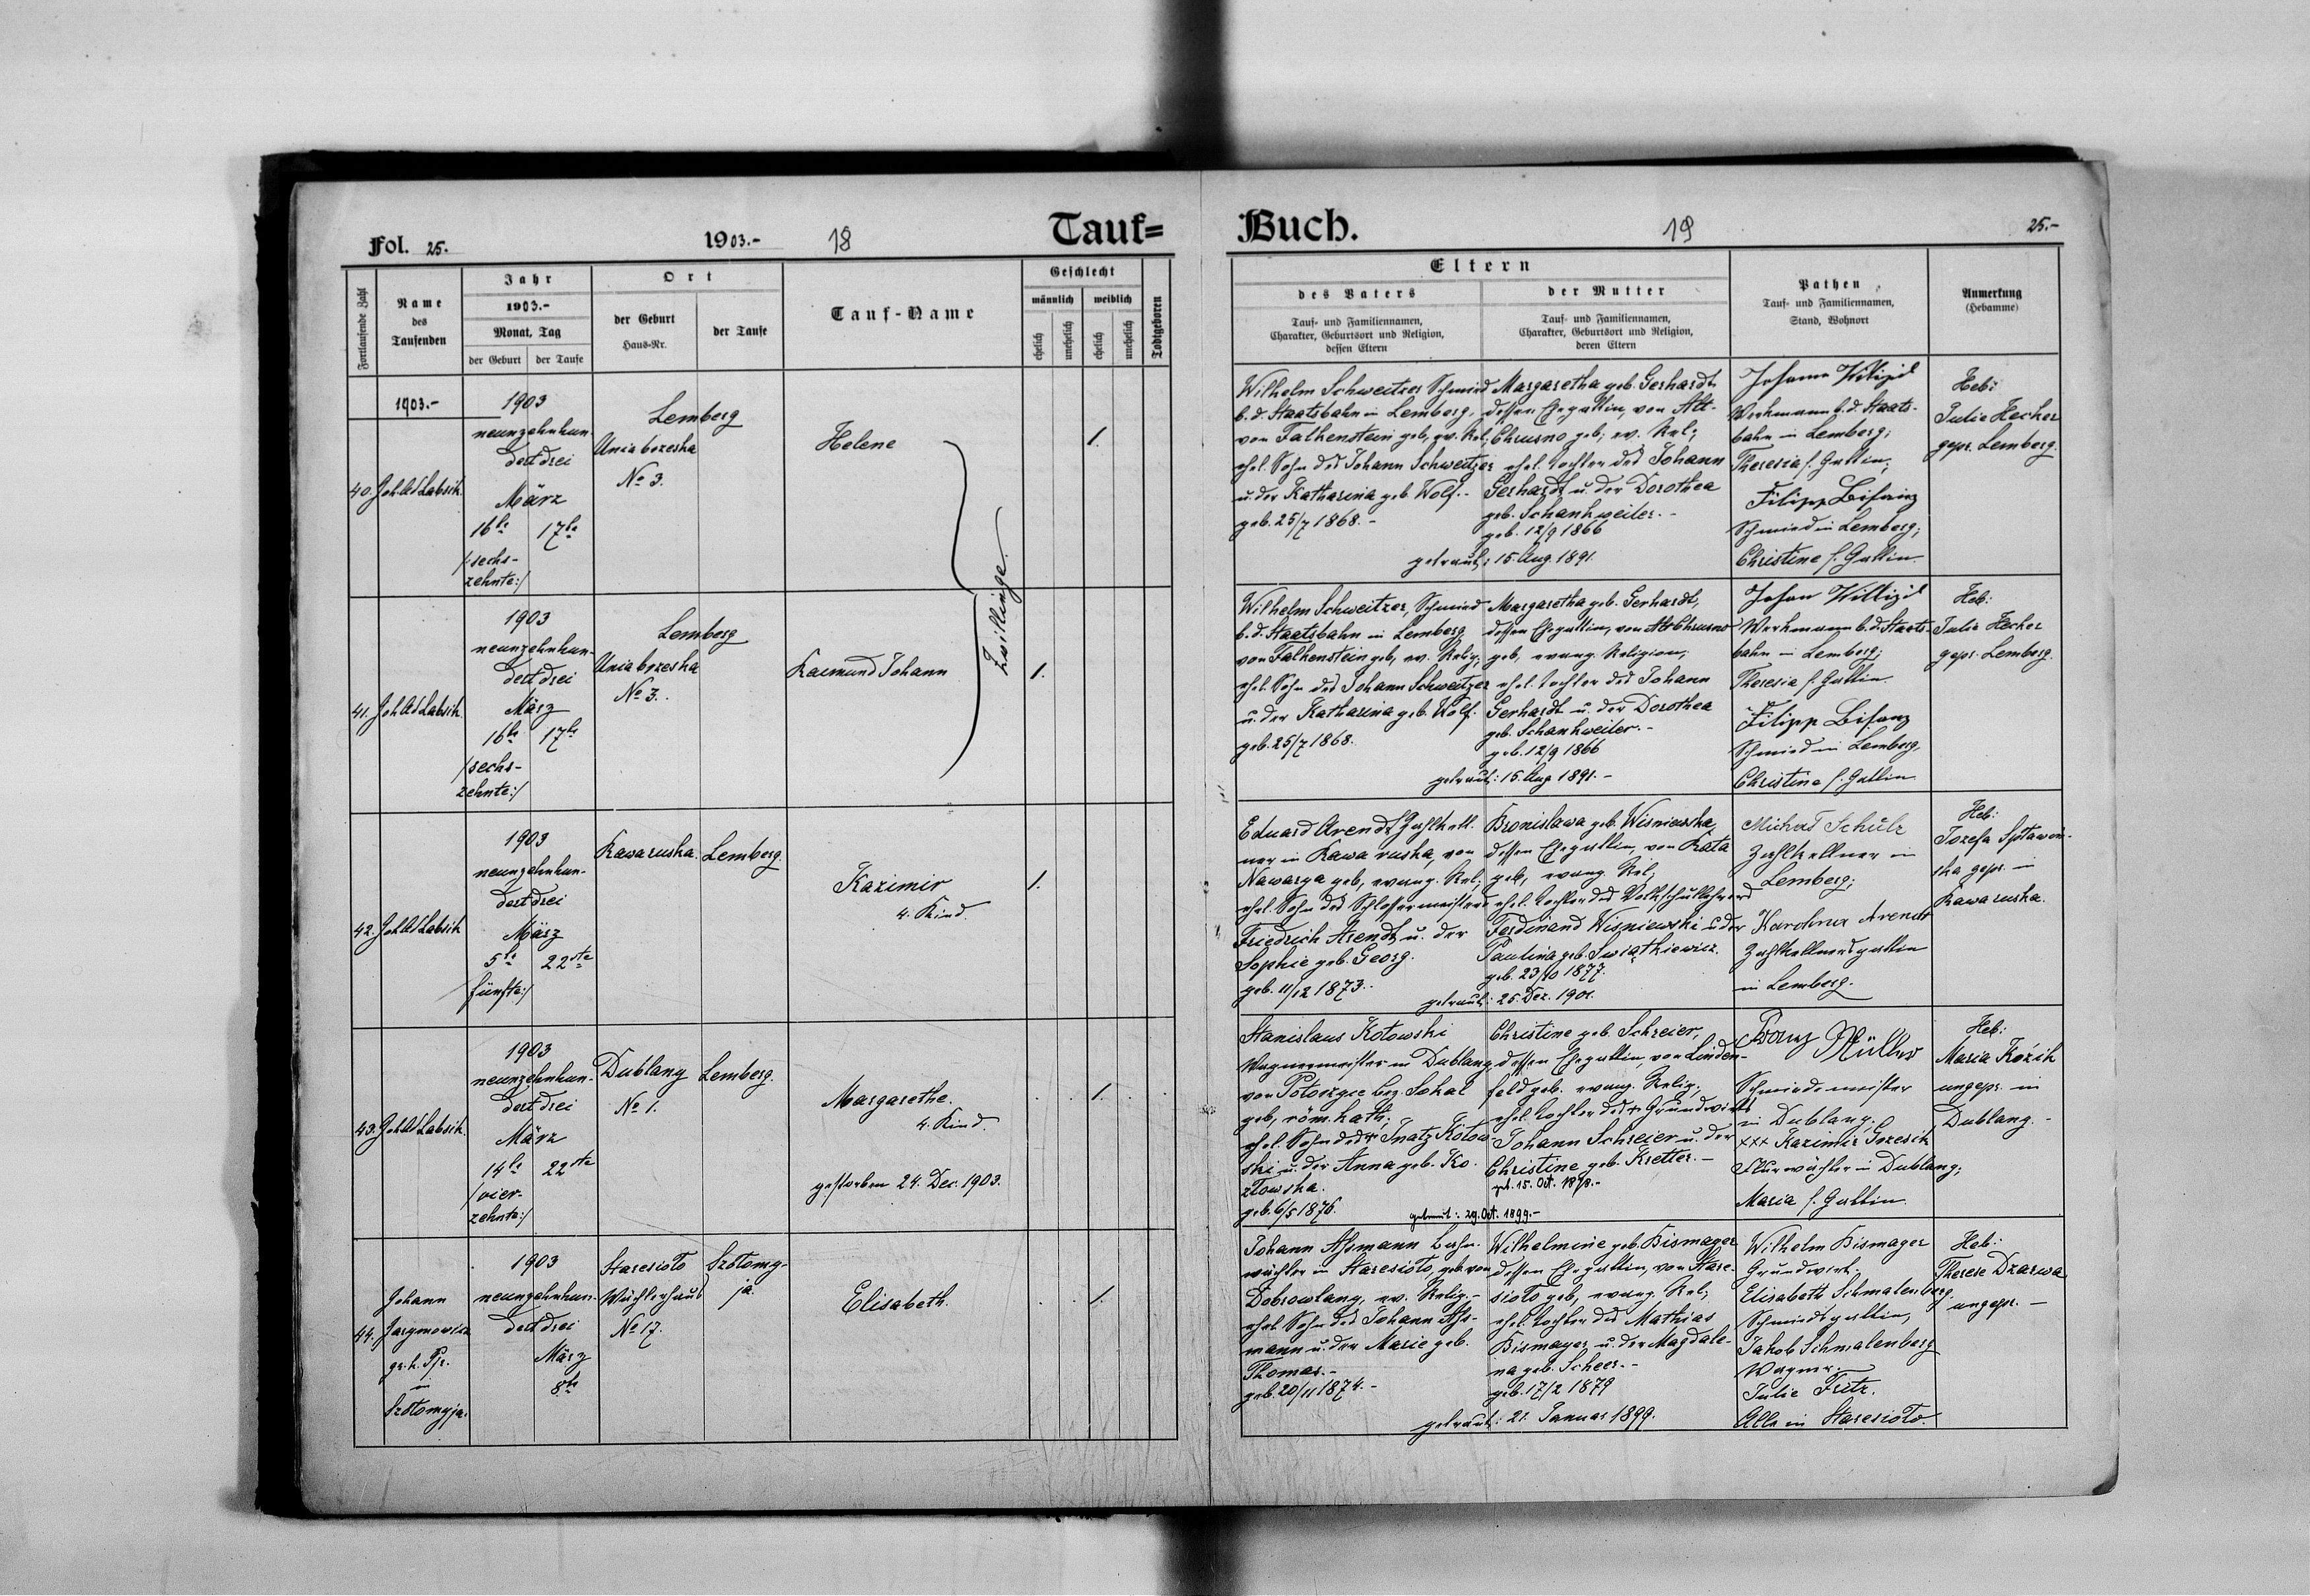 Fol. 25.
1903.-
18
Tauf=
Fortlaufende Zahl
Name
des
Taufenden
Jahr
1903.-
Monat, Tag
der Geburt
der Taufe
Ort
der Geburt
Haus-Nr.
der Taufe
Tauf-Name
Geschlecht
männlich
weiblich
ehelich
unehelich
ehelich
unehelich
Todtgeboren
1903.-
40.
Joh. Labsik.
1903
neunzehnhun-
dert drei
März
16te 17te
/:sechs-
zehnte:/
Lemberg
No 3.
Helene
1.
Zwillinge.
41.
Joh. Labsik.
1903
neunzehnhun-
dert drei
März
16te 17te
/sechs-
zehnte:/
Lemberg
No 3.
Raimund Johann
1.
42.
Joh. Labsik
1903
neunzehnhun-
dert drei
März
5te 22ste
fünfte:/
Rawaruska.
Lemberg.
Kazimir
4. Kind.
1.
43.
Joh. Labsik.
1903
neunzehnhun-
dert drei
März
14te 22ste
/vier-
zehnte:/
Dublany
No 1.
Lemberg.
Margarethe.
4. Kind.
gestorben 24. Dec. 1903.
1.
44.
Johann
Jarymowicz
gr. k. Pfr.
in
Szołomyja.
1903
neunzehnhun-
dert drei
März
8te
Staresioło
Wächterhaus
No 17.
Szołomy-
ja.
Elisabeth.
1.
Buch.
19
25.-
Eltern
des Vaters
Tauf- und Familiennamen,
Charakter, Geburtsort und Religion,
dessen Eltern
der Mutter
Tauf- und Familiennamen,
Charakter, Geburtsort und Religion,
deren Eltern
Pathen
Tauf- und Familiennamen,
Stand, Wohnort
Anmerkung
(Hebamme)
Wilhelm Schweitzer Schmied
b. d. Staatsbahn in Lemberg,
von Falkenstein geb, ev. Rel;
ehel. Sohn des Johann Schweitzer
u. der Katharina geb. Wolf.-
geb. 25/7 1868.-
Margaretha geb. Gerhardt
dessen Ehegattin, von Alt-
Chrusno geb; ev. Rel;
ehel. Tochter des Johann
Gerhardt u. der Dorothea
geb. Schankweiler.-
geb. 12/9 1866
getraut: 15. Aug. 1891.
Johann
Werkmann b. d. Staats-
bahn in Lemberg;
Theresia s. Gattin;
Filipp Bisanz
Schmied in Lemberg;
Christine s. Gattin.
Heb:
Julie Hecker
gepr. Lemberg.
Wilhelm Schweitzer, Schmied
b. d. Staatsbahn in Lemberg
von Falkenstein geb, ev. Relig;
ehel. Sohn des Johann Schweitzer
u. der Katharina geb. Wolf.
geb. 25/7 1868.
Margaretha geb. Gerhardt,
dessen Ehegattin, von Alt Chrusno
geb, evang. Religion;
ehel. Tochter des Johann
Gerhardt u. der Dorothea
geb. Schankweiler.-
geb. 12/9 1866
getraut: 15. Aug 1891.-
Johan
Werkmann b. d. Staats-
bahn in Lemberg;
Theresia s. Gattin.
Filipp Bisanz
Schmied in Lemberg,
Christine s. Gattin
Heb:
Julie Hecker
gepr. Lemberg.
Eduard Arendt Zahlkell-
ner in Rawa ruska, von
Nawarya geb, evang. Rel;
ehel. Sohn des Schlossermeisters
Friedrich Arendt u. der
Sophie geb. Georg.
geb. 11/12 1873.
Bronislawa geb. Wisniewska,
dessen Ehegattin, von Rata
geb, evang. Rel;
ehel. Tochter des Volksschullehrers
Ferdinand Wisniewski u. der
Paulina geb. Swiątkiewicz.
geb. 23/10 1877.
getraut: 25. Dez. 1901.
Michał Schulz
Zahlkellner in
Lemberg;
Karolina Arendt
Zahlkellnersgattin
in Lemberg.
Heb:
Josefa
ska gepr. in
Rawaruska.
Stanislaus Kotowski
Wagnermeister in Dublany
von Potorzyce bez. Sokal
geb, röm. kath;
ehel. Sohn des Inatz Kotow-
ski u. der Anna geb. Ko-
złowska.
geb. 6/5 1876.
Christine geb. Schreier,
dessen Ehegattin, von Linden-
feld geb. evang. Relig;
ehel. Tochter des Grundwirts
Johann Schreier u. der
Christine geb. Kretter.-
geb. 15. Oct. 1878.-
getraut: 29. Oct. 1899.-
Franz Müller
Schmiedemeister
in Dublany;
+++ Kazimir Gresik
Flurwächter in Dublany;
Maria s. Gattin.
Heb:
Maria Kozik
ungepr. in
Dublany.-
Johann Assmann Bahn-
wächter in Staresioło, geb. von
Dobrowlany, ev. Relig.-
ehel. Sohn des Johann Ass-
mann u. der Marie geb.
Thomas.-
geb. 20/11 1874.-
Wilhelmine geb. Bismayer
dessen Ehegattin, von Stare-
sioło geb, evang. Rel;
ehel. Tochter des Mathias
Bismayer u. der Magdale-
na geb. Scheer.-
geb. 17/2 1879
getraut: 21. Januar 1899.
Wilhelm Bismayer
Grundwirt.
Elisabeth Schmalenberg
Schmiedsgattin,
Jakob Schmalenberg
Wagner.
Julie Fritz.
Alle in Staresioło.
Heb:
Therese Dzarwa
ungepr.-